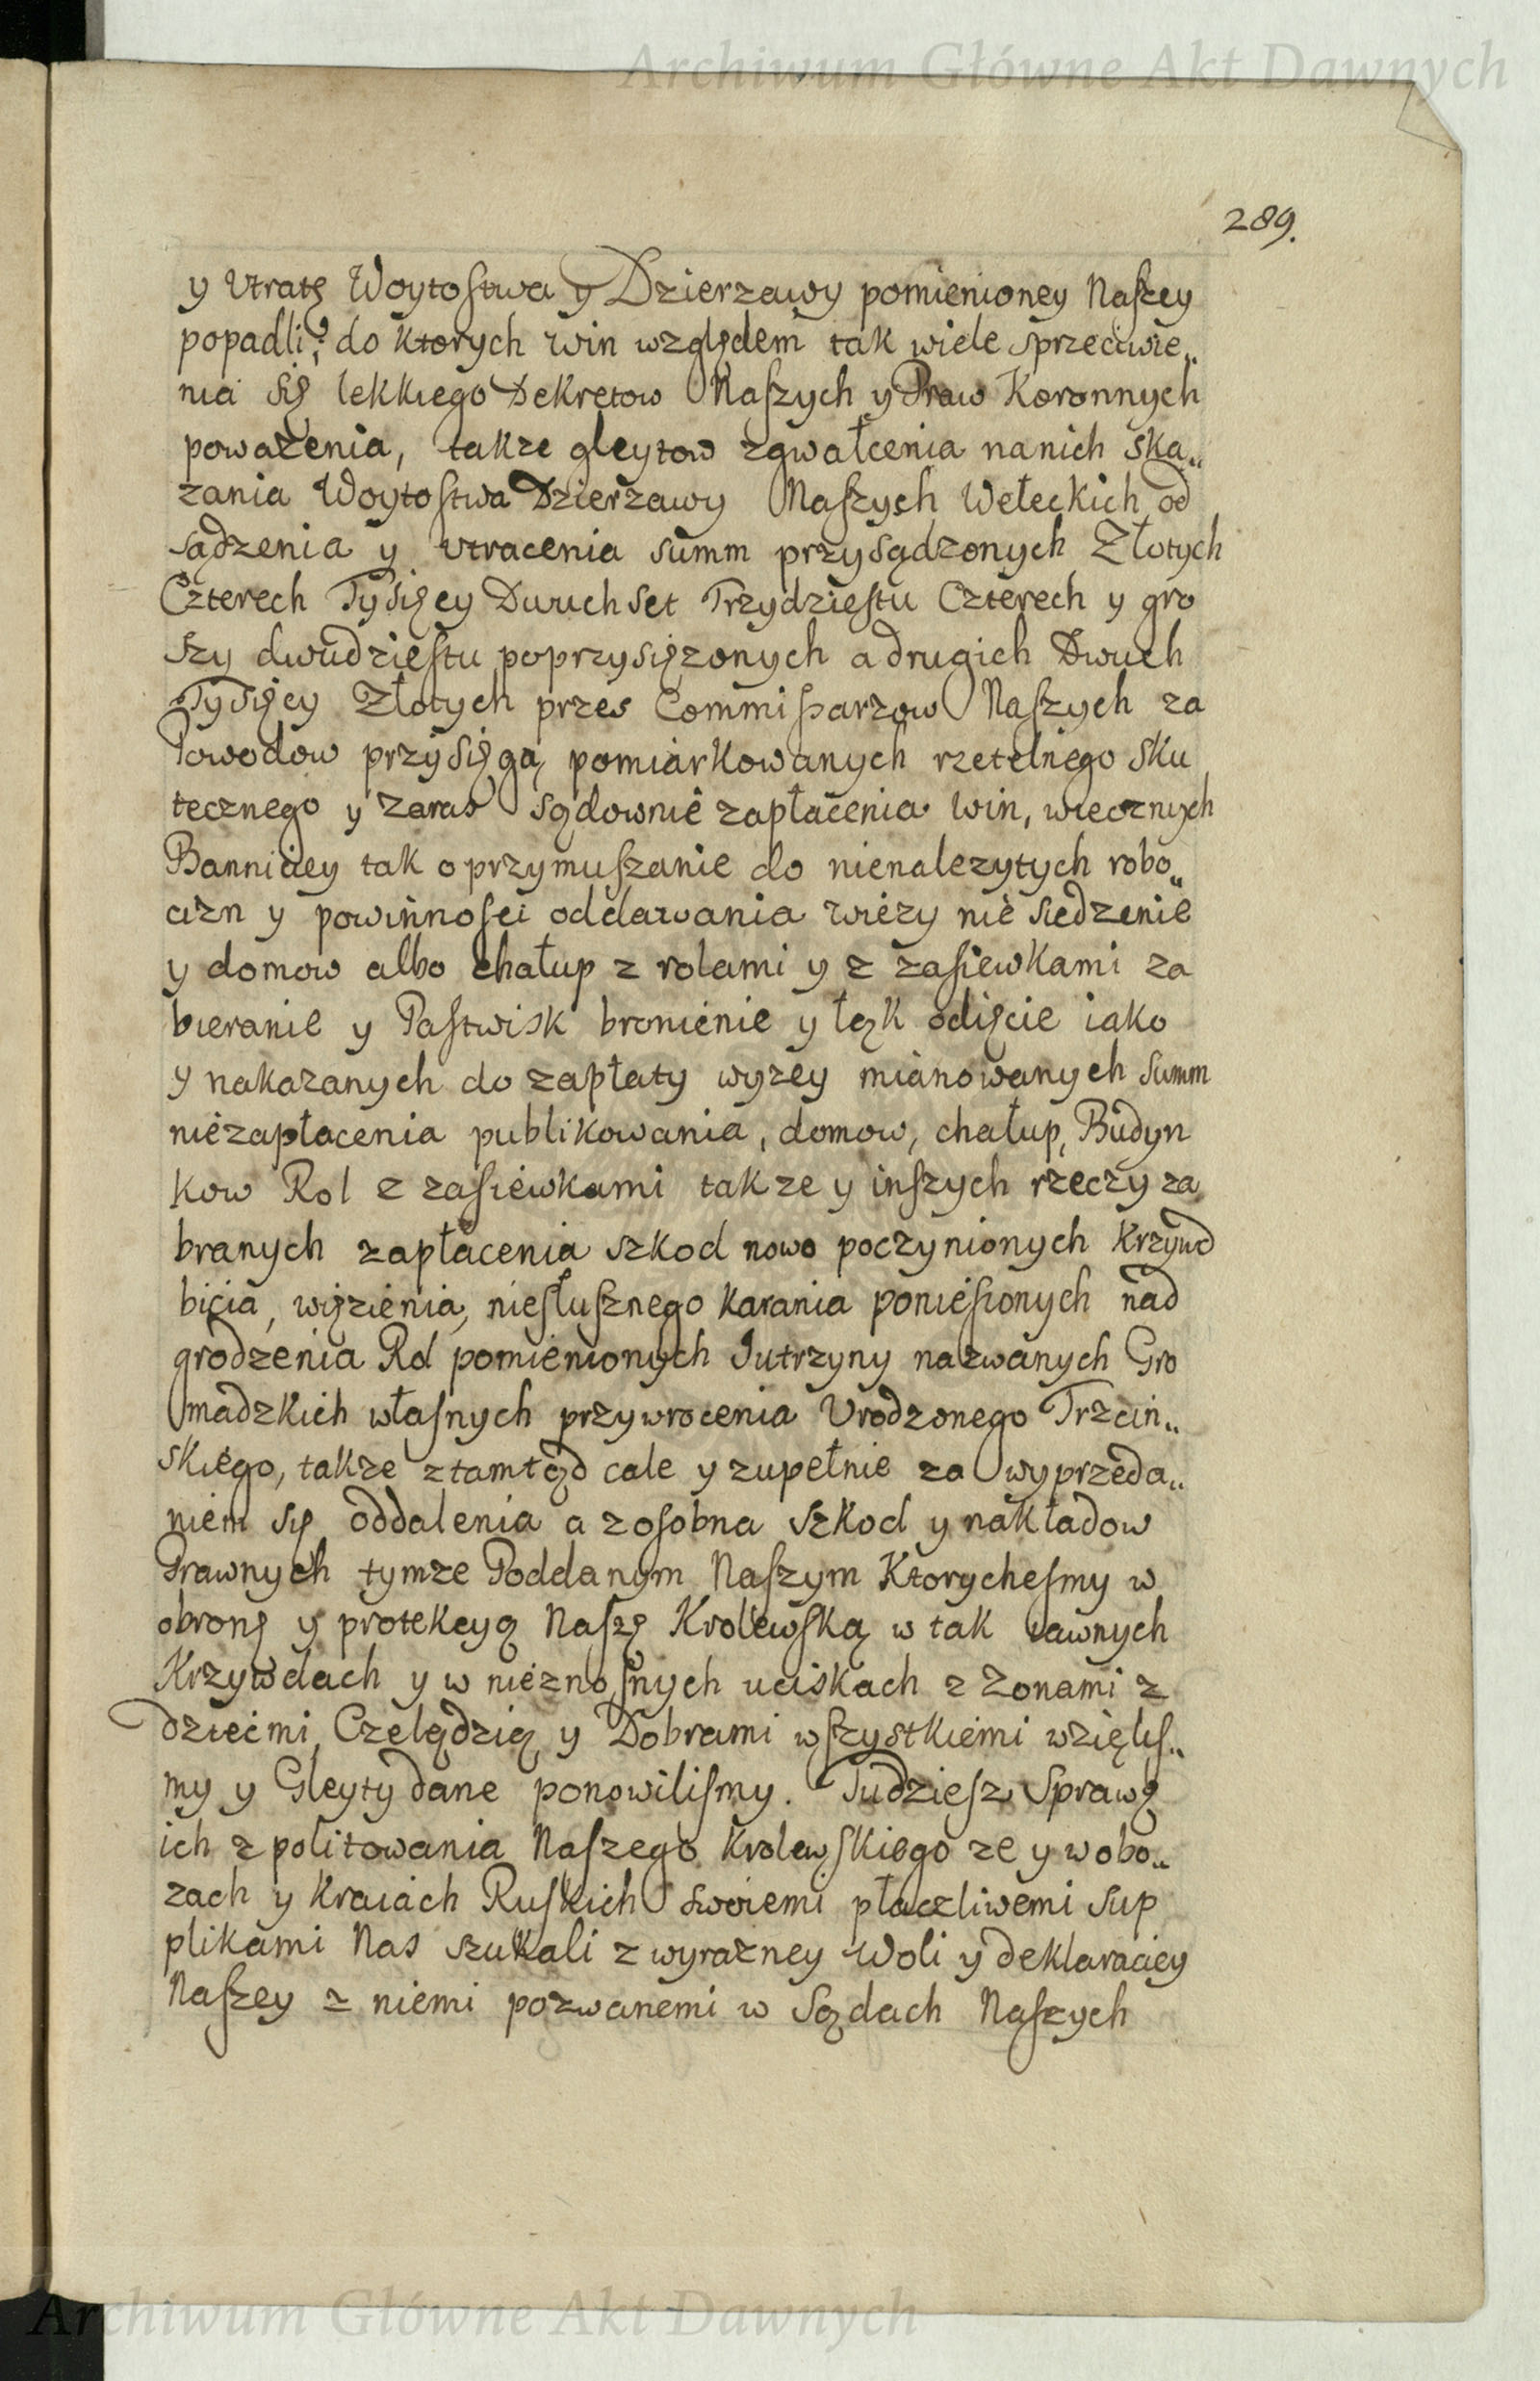 Archiwum Główne Akt Dawnych
289.
y Utratę Woytostwa y Dzierzawy pomienioney Naszey
popadli; do ktorych win względem tak wiele sprzeciwie„
nia się lekkiego Dekretow Naszych y Praw Koronnych
powazenia, takze gleytow zgwałcenia nanich ska„
zania Woytostwa Dzierzawy Naszych Wełeckich od
sądzenia y utracenia summ przysądzonych Złotych
Czterech Tysięcy Dwuchset Trzydziestu Czterech y gro
szy dwudziestu poprzysięzonych a drugich Dwuch
Tysięcy Złotych przes Commissarzow Naszych za
Powodow przysięgą pomiarkowanych rzetelnego sku
tecznego y zaras sądownie zapłacenia win, wiecznych
Banniciey tak o przymuszanie do nienalezytych robo„
cizn y powinnosci oddawania wiezy nie siedzenie
y domow albo chałup z rolami y z zasiewkami za
bieranie y Pastwisk bronienie y łąk odięcie iako
y nakazanych do zapłaty wyzey mianowanych summ
niezapłacenia publikowania, domow, chałup, Budyn
kow Rol z zasiewkami takze y inszych rzeczy za
branych zapłacenia szkod nowo poczynionych Krzywd
bicia, więzienia, niesłusznego karania poniesionych nad
grodzenia Rol pomienionych Jutrzyny nazwanych Gro
madzkich własnych przywrocenia Urodzonego Trzcin„
skiego, takze ztamtąd cale y zupełnie za wyprzeda„
niem się oddalenia a zosobna szkod y nakładow
Prawnych tymze Poddanym Naszym Ktorychesmy w
obronę y protekcyą Naszę Krolewską w tak iawnych
Krzywdach y w nieznosnych uciskach z Zonami z
dziećmi, Czelądzią y Dobrami wszystkiemi wzięlis„
my y Gleyty dane ponowilismy. Tudziesz Sprawę
ich z politowania Naszego Krolewskiego ze y wobo„
zach y Kraiach Ruskich swoiemi płaczliwemi sup
plikami Nas szukali z wyrazney Woli y deklaraciey
Naszey z niemi pozwanemi w Sądach Naszych
Archiwum Główne Akt Dawnych